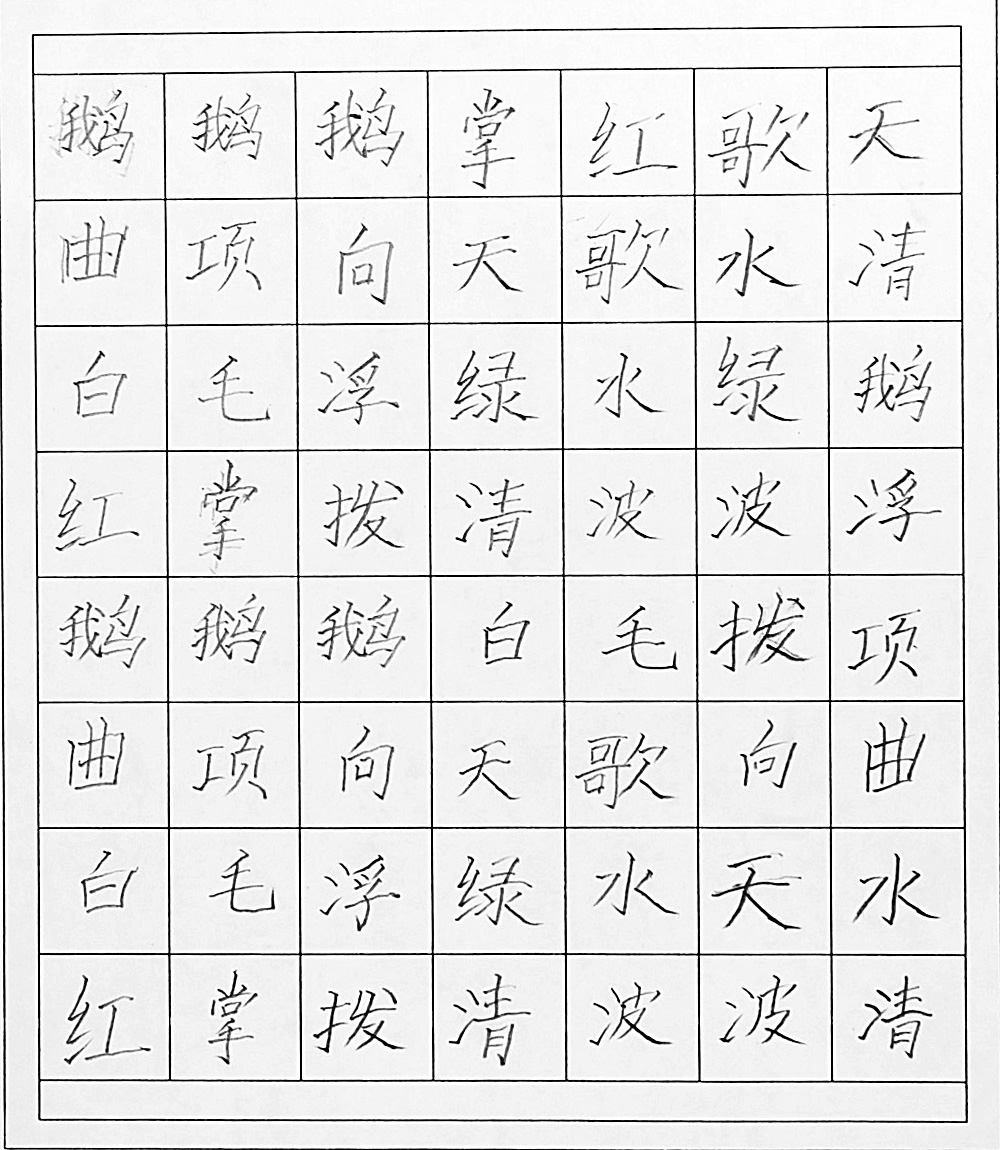 鹅鹅鹅掌红歌天
曲项向天歌水清
白毛浮绿水绿鹅
红掌拨清波波浮
鹅鹅鹅白毛拨项
曲项向天歌向曲
白毛浮绿水天水
红掌拨清波波清